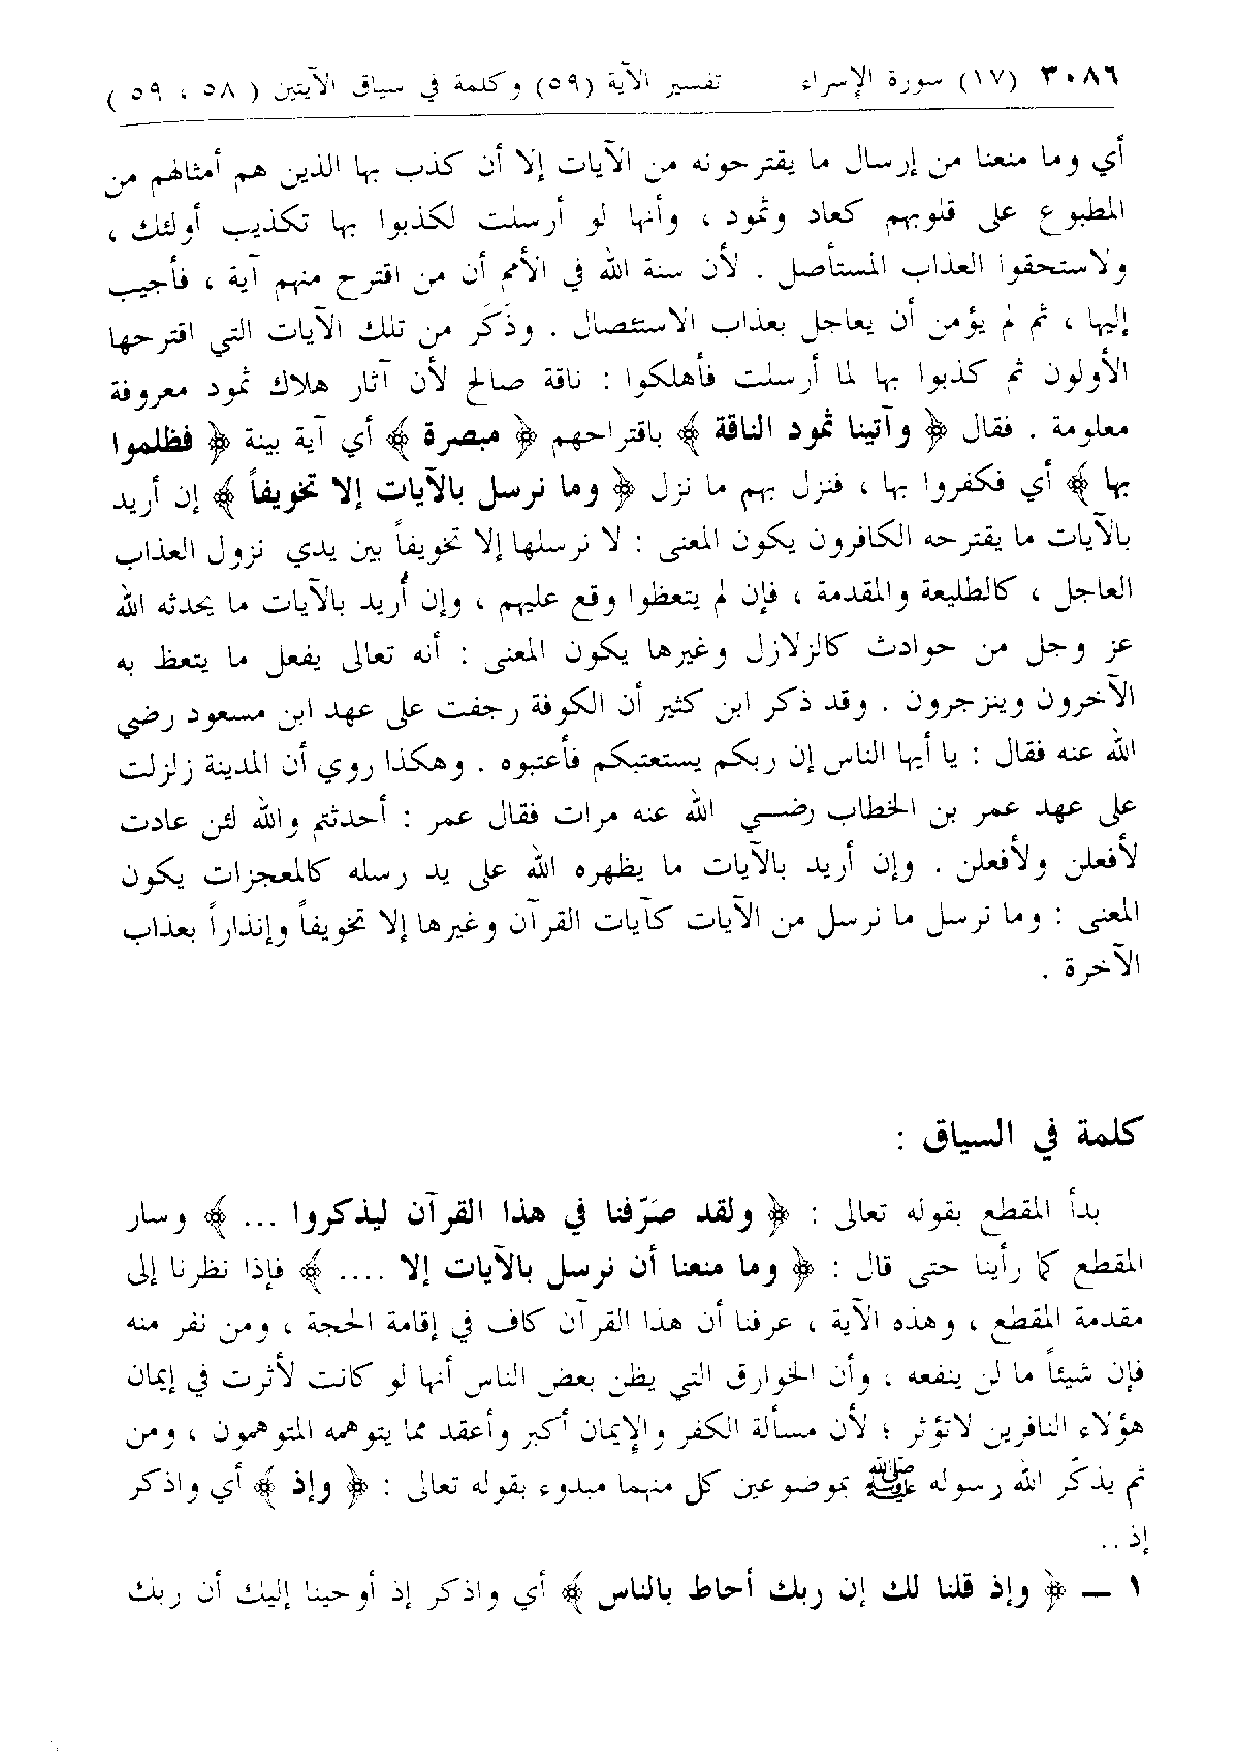 ٣٠٨٦ (١٧) سورة الإسراء تفسير الآية (٥٩) وكلمة في سياق الآيتين ( ٥٨ ، ٥٩ )
أي وما منعنا من إرسال ما يقترحونه من الآيات إلا أن كذب بها الذين هم أمثالهم من
المطبوع على قلوبهم كعاد وثمود ، وأنها لو أرسلت لكذبوا بها تكذيب أولئك ،
ولاستحقوا العذاب المستأصل . لأن سنة الله في الأمم أن من اقترح منهم آية ، فأجيب
إليها ، ثم لم يؤمن أن يعاجل بعذاب الاستئصال . وذَكَر من تلك الآيات التي اقترحها
الأولون ثم كذبوا بها لما أرسلت فأهلكوا : ناقة صالح لأن آثار هلاك ثمود معروفة
معلومة . فقال ﴿ وآتينا ثمود الناقة ﴾ باقتراحهم ﴿ مبصرة ﴾ أي آية بينة ﴿ فظلموا
بها ﴾ أي فكفروا بها ، فنزل بهم ما نزل ﴿ وما نرسل بالآيات إلا تخويفاً ﴾ إن أريد
بالآيات ما يقترحه الكافرون يكون المعنى : لا نرسلها إلا تخويفاً بين يدي نزول العذاب
العاجل ، كالطليعة والمقدمة ، فإن لم يتعظوا وقع عليهم ، وإن أُريد بالآيات ما يحدثه الله
عز وجل من حوادث كالزلازل وغيرها يكون المعنى : أنه تعالى يفعل ما يتعظ به
الآخرون وينزجرون . وقد ذكر ابن كثير أن الكوفة رجفت على عهد ابن مسعود رضي
الله عنه فقال : يا أيها الناس إن ربكم يستعتبكم فأعتبوه . وهكذا روي أن المدينة زلزلت
على عهد عمر بن الخطاب رضي الله عنه مرات فقال عمر : أحدثتم والله لئن عادت
لأفعلن ولأفعلن . وإن أريد بالآيات ما يظهره الله على يد رسله كالمعجزات يكون
المعنى : وما نرسل ما نرسل من الآيات كآيات القرآن وغيرها إلا تخويفاً وإنذاراً بعذاب
الآخرة .
كلمة في السياق :
بدأ المقطع بقوله تعالى : ﴿ ولقد صَرّفنا في هذا القرآن ليذكروا ... ﴾ وسار
المقطع كما رأينا حتى قال : ﴿ وما منعنا أن نرسل بالآيات إلا .... ﴾ فإذا نظرنا إلى
مقدمة المقطع ، وهذه الآية ، عرفنا أن هذا القرآن كاف في إقامة الحجة ، ومن نفر منه
فإن شيئاً ما لن ينفعه ، وأن الخوارق التي يظن بعض الناس أنها لو كانت لأثرت في إيمان
هؤلاء النافرين لاتؤثر ؛ لأن مسألة الكفر والإيمان أكبر وأعقد مما يتوهمه المتوهمون ، ومن
ثم يذكّر الله رسوله ﷺ بموضوعين كل منهما مبدوء بقوله تعالى : ﴿ وإذ ﴾ أي واذكر
إذ ..
١ — ﴿ وإذ قلنا لك إن ربك أحاط بالناس ﴾ أي واذكر إذ أوحينا إليك أن ربك